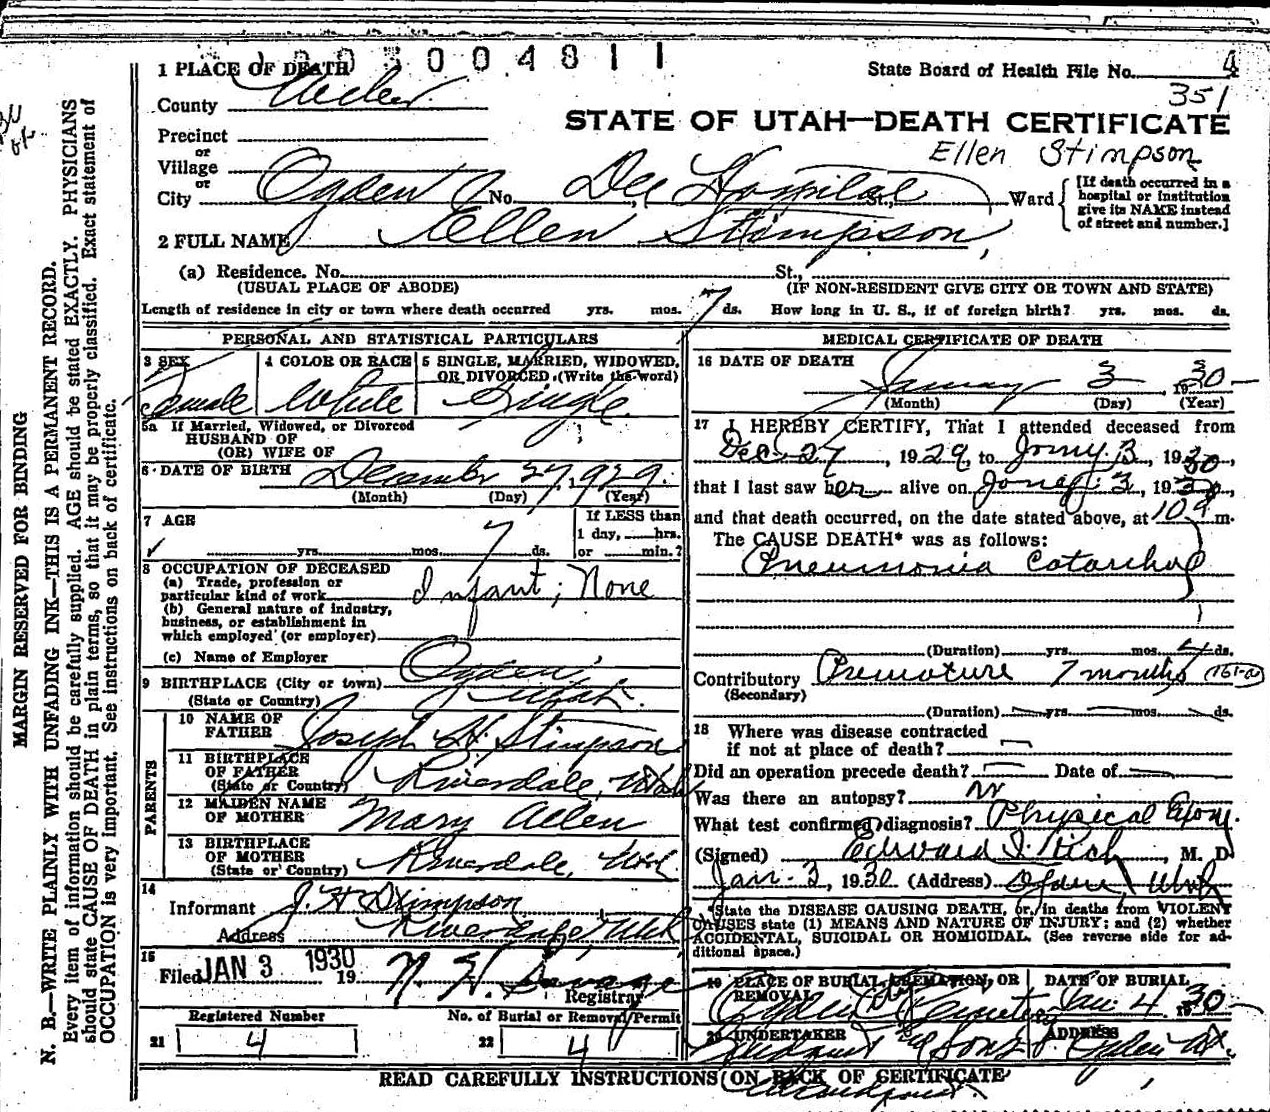 004811
1 PLACE OF DEATH
State Board of Health File No. 4
County Weber
351
STATE OF UTAH—DEATH CERTIFICATE
Precinct
Ellen Stimpson
or
Village
or
City Ogden No. Dee Hospital St., Ward
[If death occurred in a
hospital or institution
give its NAME instead
of street and number.]
2 FULL NAME Ellen Stimpson
(a) Residence. No. St.,
(USUAL PLACE OF ABODE) (IF NON-RESIDENT GIVE CITY OR TOWN AND STATE)
Length of residence in city or town where death occurred yrs. mos. 7 ds. How long in U. S., if of foreign birth? yrs. mos. ds.
PERSONAL AND STATISTICAL PARTICULARS
3 SEX
Female
4 COLOR OR RACE
White
5 SINGLE, MARRIED, WIDOWED,
OR DIVORCED. (Write the word)
Single
5a If Married, Widowed, or Divorced
HUSBAND OF
(OR) WIFE OF
6 DATE OF BIRTH December 27, 1929.
(Month) (Day) (Year)
7 AGE
yrs. mos. 7 ds.
If LESS than
1 day, hrs.
or min.?
8 OCCUPATION OF DECEASED
(a) Trade, profession or
particular kind of work Infant; None
(b) General nature of industry,
business, or establishment in
which employed (or employer)
(c) Name of Employer
9 BIRTHPLACE (City or town) Ogden,
(State or Country) Utah.
PARENTS
10 NAME OF
FATHER Joseph H. Stimpson
11 BIRTHPLACE
OF FATHER
(State or Country) Riverdale, Utah
12 MAIDEN NAME
OF MOTHER Mary Allen
13 BIRTHPLACE
OF MOTHER
(State or Country) Riverdale, Utah
14
Informant J. H. Stimpson
Address Riverdale Utah
15
Filed JAN 3 1930 19
N. H. Savage
Registrar
Registered Number
21 4
No. of Burial or Removal Permit
22 4
MEDICAL CERTIFICATE OF DEATH
16 DATE OF DEATH
January 3, 1930
(Month) (Day) (Year)
17 I HEREBY CERTIFY, That I attended deceased from
Dec. 27, 1929, to Jany 3, 1930,
that I last saw her alive on 3, 1930,
and that death occurred, on the date stated above, at m.
The CAUSE DEATH* was as follows:
Pneumonia Catarrhal
(Duration) yrs. mos. ds.
Contributory Premature 7 months 161-a
(Secondary)
(Duration) yrs. mos. ds.
18 Where was disease contracted
if not at place of death?
Did an operation precede death? Date of
Was there an autopsy? No
What test confirmed diagnosis? Physical
(Signed) Edward I. Rich, M. D
Jan. 3, 1930 (Address) Ogden Utah
*State the DISEASE CAUSING DEATH, or, in deaths from VIOLENT
CAUSES state (1) MEANS AND NATURE OF INJURY; and (2) whether
ACCIDENTAL, SUICIDAL OR HOMICIDAL. (See reverse side for ad-
ditional space.)
19 PLACE OF BURIAL, CREMATION, OR
REMOVAL
Ogden City Cemetery
DATE OF BURIAL
Jan. 4 1930
20 UNDERTAKER
& Sons
ADDRESS
Ogden Ut.
READ CAREFULLY INSTRUCTIONS ON BACK OF CERTIFICATE
MARGIN RESERVED FOR BINDING
N. B.—WRITE PLAINLY WITH UNFADING INK—THIS IS A PERMANENT RECORD.
Every item of information should be carefully supplied. AGE should be stated EXACTLY. PHYSICIANS
should state CAUSE OF DEATH in plain terms, so that it may be properly classified. Exact statement of
OCCUPATION is very important. See instructions on back of certificate.